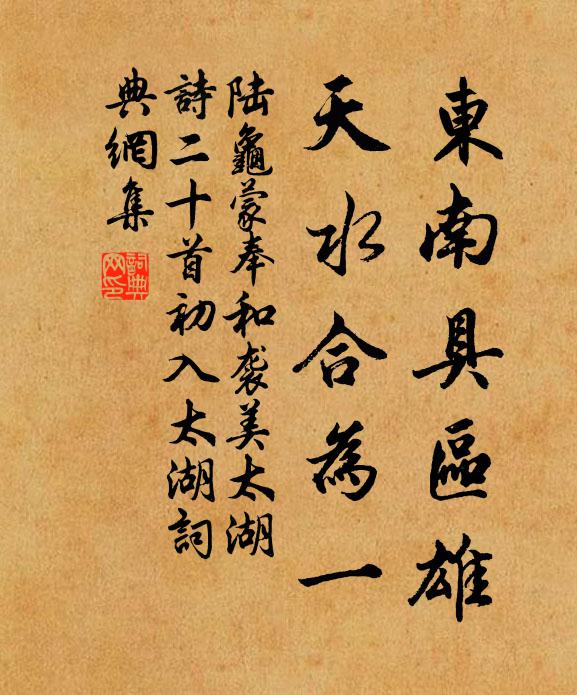 東南具區雄
天水合為一
陆龜蒙奉和袭美太湖
詩二十首初入太湖詞
典網集
詞典网印